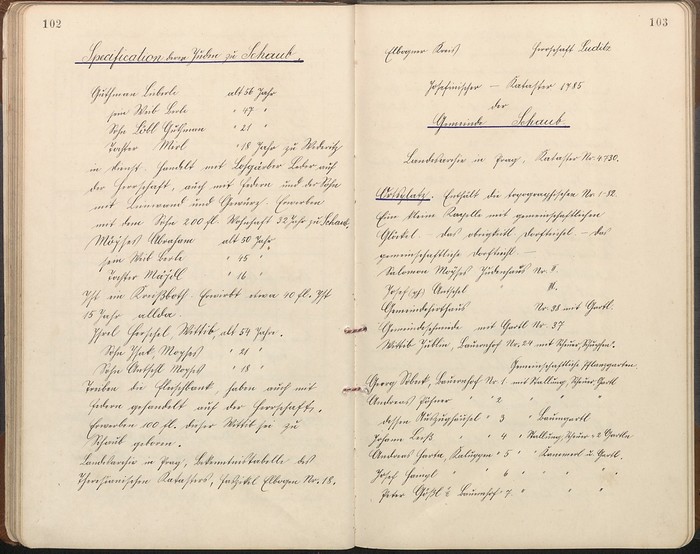 102
Specification derer Juden zu Schaub.
Güthman Liberle alt 56 Jahr
sein Weib Berle " 47 "
Sohn Löbl Güthman " 21 "
Tochter Mirl " 18 Jahr zu Wideritz
in Dienst. Handelt mit Lohgärber Leder auf
der Herrschaft, auch mit Federn und der Sohn
mit Leinwand und Gewürz. Erwerben
mit dem Sohn 200 fl. Wohnhaft 32 Jahr zu Schaub.
Moyses Abraham alt 50 Jahr
sein Weib Berle " 45 "
Tochter Maydl " 16 "
Ist ein Kreißboth. Erwirbt etwa 40 fl. Ist
15 Jahr allda.
Isroel Herschel, Wittib, alt 54 Jahr.
Sohn Isak Moyses " 21 "
Sohn Antschl Moyses " 18 "
Treiben die Fleischbank, haben auch mit
Federn gehandelt auf der Herrschaft.
Erwerben 100 fl. dieser Wittib sei zu
Schaub geboren.
Landesarchiv in Prag, Bekenntnistabelle des
Theresianischen Katasters, Faszikel Elbogen No. 18.
103
Elbogner Kreis Herrschaft Luditz
Josefinischer - Kataster 1785
der
Gemeinde Schaub.
Landesarchiv in Prag, Kataster No. 4730.
Ortsplatz. Enthält die topographischen No. 1-52.
Eine kleine Kapelle mit gemeinschaftlichen
Glöckel. - das obrigkeitl. Dorfteichel. - das
gemeinschaftliche Dorfteichl. -
Salomon Moyses Judenhaus No. 9.
Josef Antschel "
Gemeindehirthaus No. 38 mit Gartl.
Gemeindeschmiede mit Gartl No. 37
Wittib Bauernhof No. 24 mit
Gemeinschaftliche Pflanzgarten.
Georg Bauernhof No. 1 mit Stallung, Scheuer, Gartl
Andreas " " 2 " "
dessen Auszughäusel " 3 " Baumgartl
Johann " " 4 " Stallung, Scheuer u 2 Gartln
Andreas Hartl, Kaluppe " 5 " " u. Gartl.
Josef Hampl " " 6 " " "
Peter Bauernhof 7 " " "